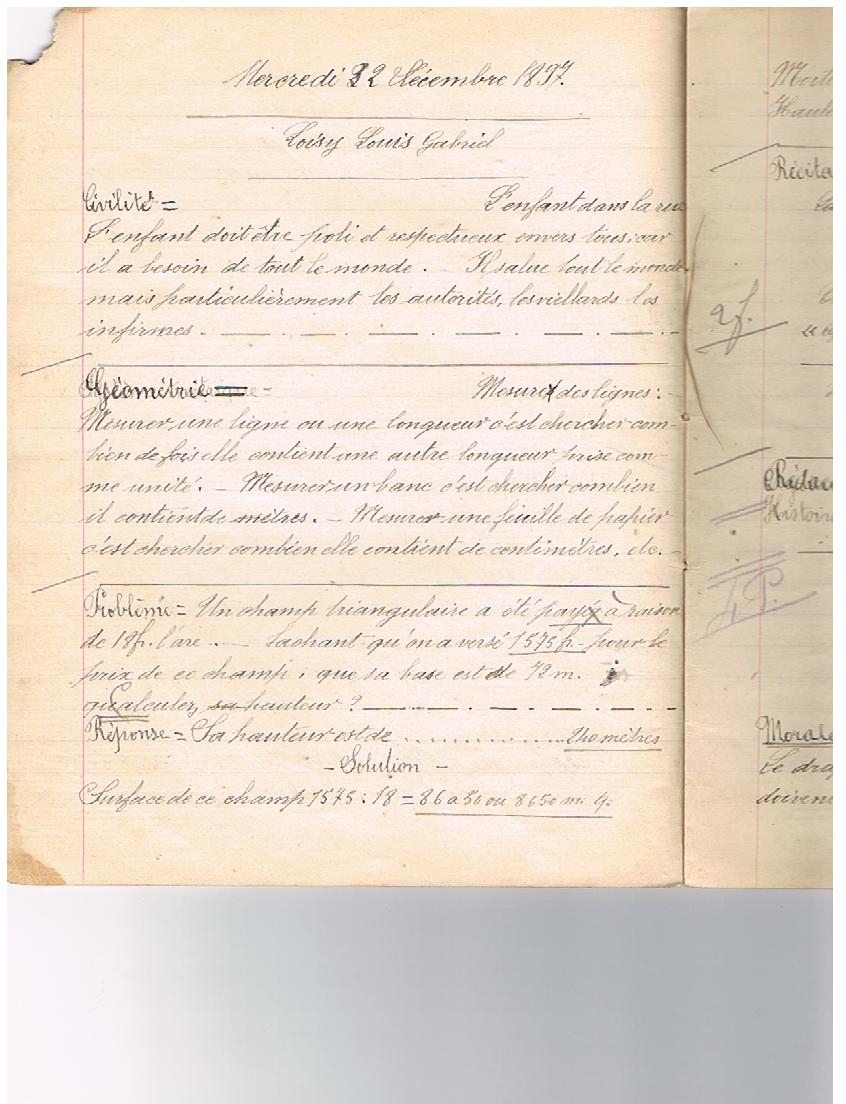 Mercredi 22 Décembre 1897.
Loisy Louis Gabriel
Civilité = L'enfant dans la rue
L'enfant doit être poli et respectueux envers tous; car
il a besoin de tout le monde. - Il salue tout le monde
mais particulièrement les autorités, les viellards les
infirmes.
Géométrie = Mesure des lignes:
Mesurer une ligne ou une longueur c'est chercher com-
bien de fois elle contient une autre longueur prise com-
me unité. - Mesurer un banc c'est chercher combien
il contient de mètres. - Mesurer une feuille de papier
c'est chercher combien elle contient de centimètres, etc. -
Problème = Un champ triangulaire a été payé à raison
de 18f. l'are. - Sachant qu'on a versé 1575 fr. pour le
prix de ce champ; que sa base est de 72 m.
calculez sa hauteur?
Réponse = Sa hauteur est de .................. 240 mètres
- Solution -
Surface de ce champ 1575 : 18 = 86 a 50 ou 8650 m. q.
Haute
Récita
2f.
Rédac
Histoire
T.P.
Morale
Le dra
doiven